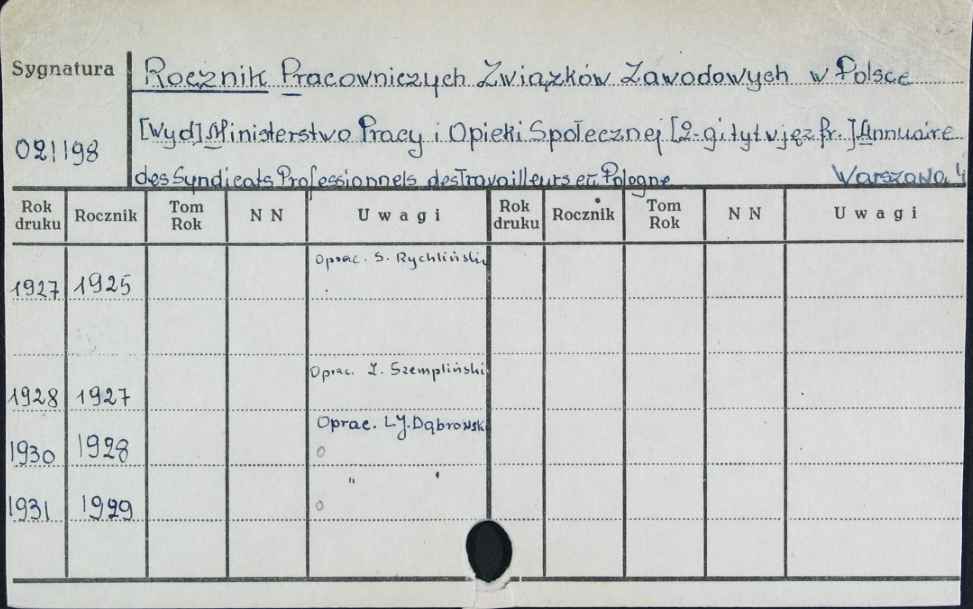 Sygnatura
Rocznik Pracowniczych Związków Zawodowych w Polsce
[Wyd] Ministerstwo Pracy i Opieki Społecznej [2-gi tyt w jęz fr.] Annuaire
021198
des Syndicats Professionnels des Travailleurs en Pologne Warszawa 4
Rok druku Rocznik Tom Rok N N Uwagi Rok druku Rocznik Tom Rok N N Uwagi
Oprac. S. Rychliński
1927 1925
Oprac. I. Szempliński
1928 1927
Oprac. L.J. Dąbrowski
1930 1928 o
" "
1931 1929 o